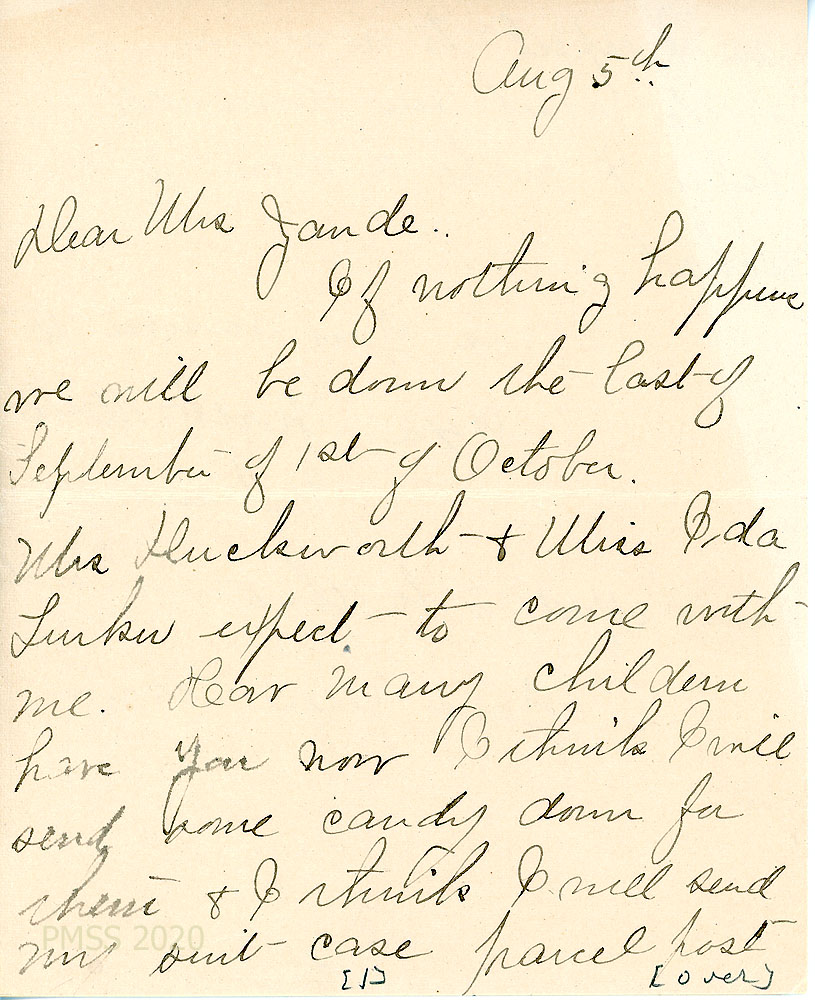 Aug 5th
Dear Mrs Zande..
If nothing happens
we will be down the last of
September of 1st of October.
Mrs Duckworth & Miss Ida
expect to come with
me. How many childern
have you now I think I will
send some candy down for
them & I think I will send
my suit case parcel post
PMSS 2020
[1] [over]